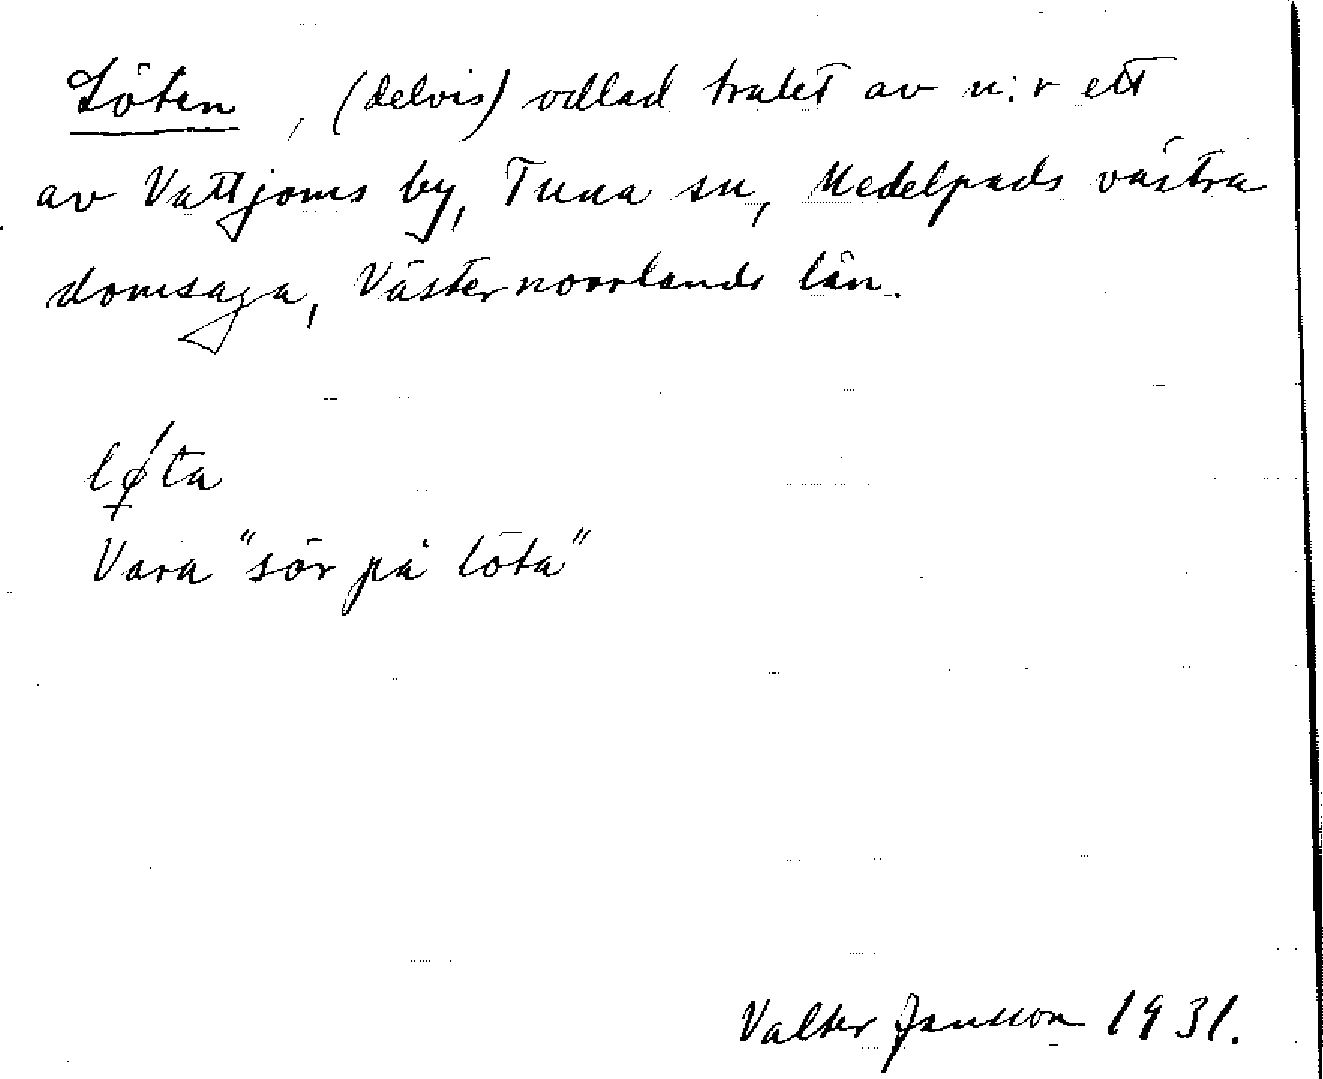 Löten, (delvis) odlad trakt av n:r ett
av Vattjoms by, Tuna sn, Medelpads västra
domsaga, Västernorrlands län.
lø̀ta
Vara "sör på löta"
Valter Jansson 1931.